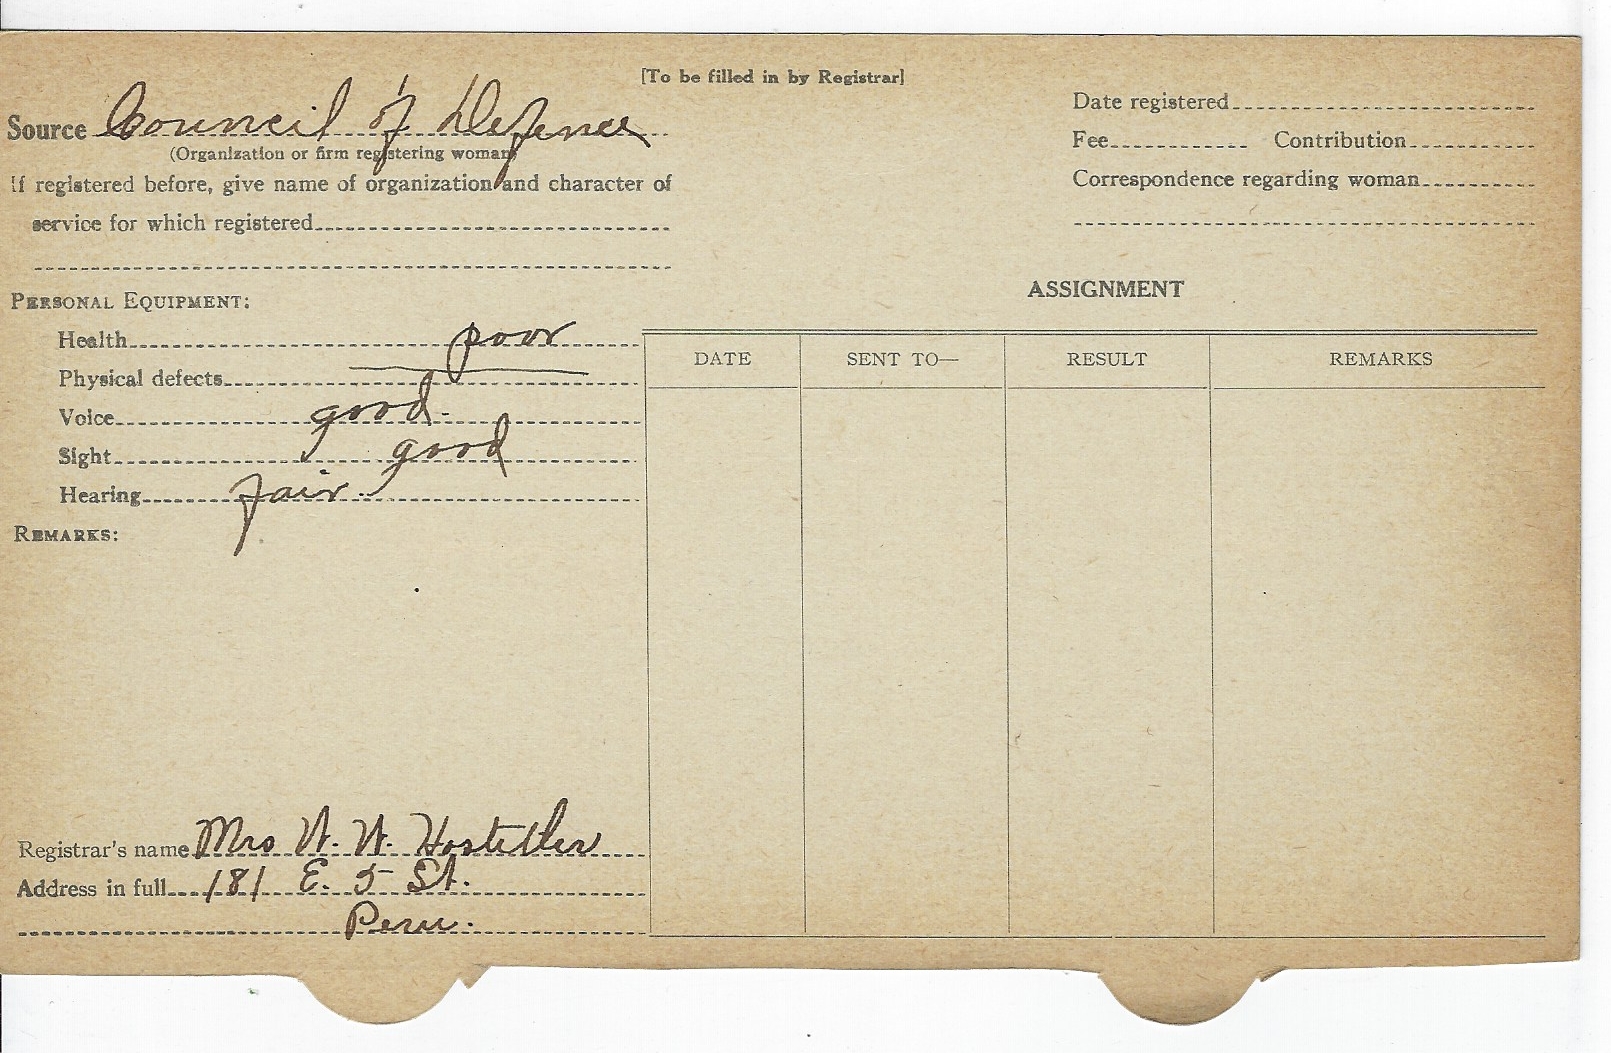 [To be filled in by Registrar]
Source Council of Defence
(Organization or firm registering woman)
If registered before, give name of organization and character of
service for which registered
Date registered
Fee Contribution
Correspondence regarding woman
PERSONAL EQUIPMENT:
Health poor
Physical defects
Voice good
Sight good
Hearing fair
REMARKS:
ASSIGNMENT
DATE SENT TO— RESULT REMARKS
Registrar's name Mrs W. W. Hostetler
Address in full 181 E. 5 St.
Peru.